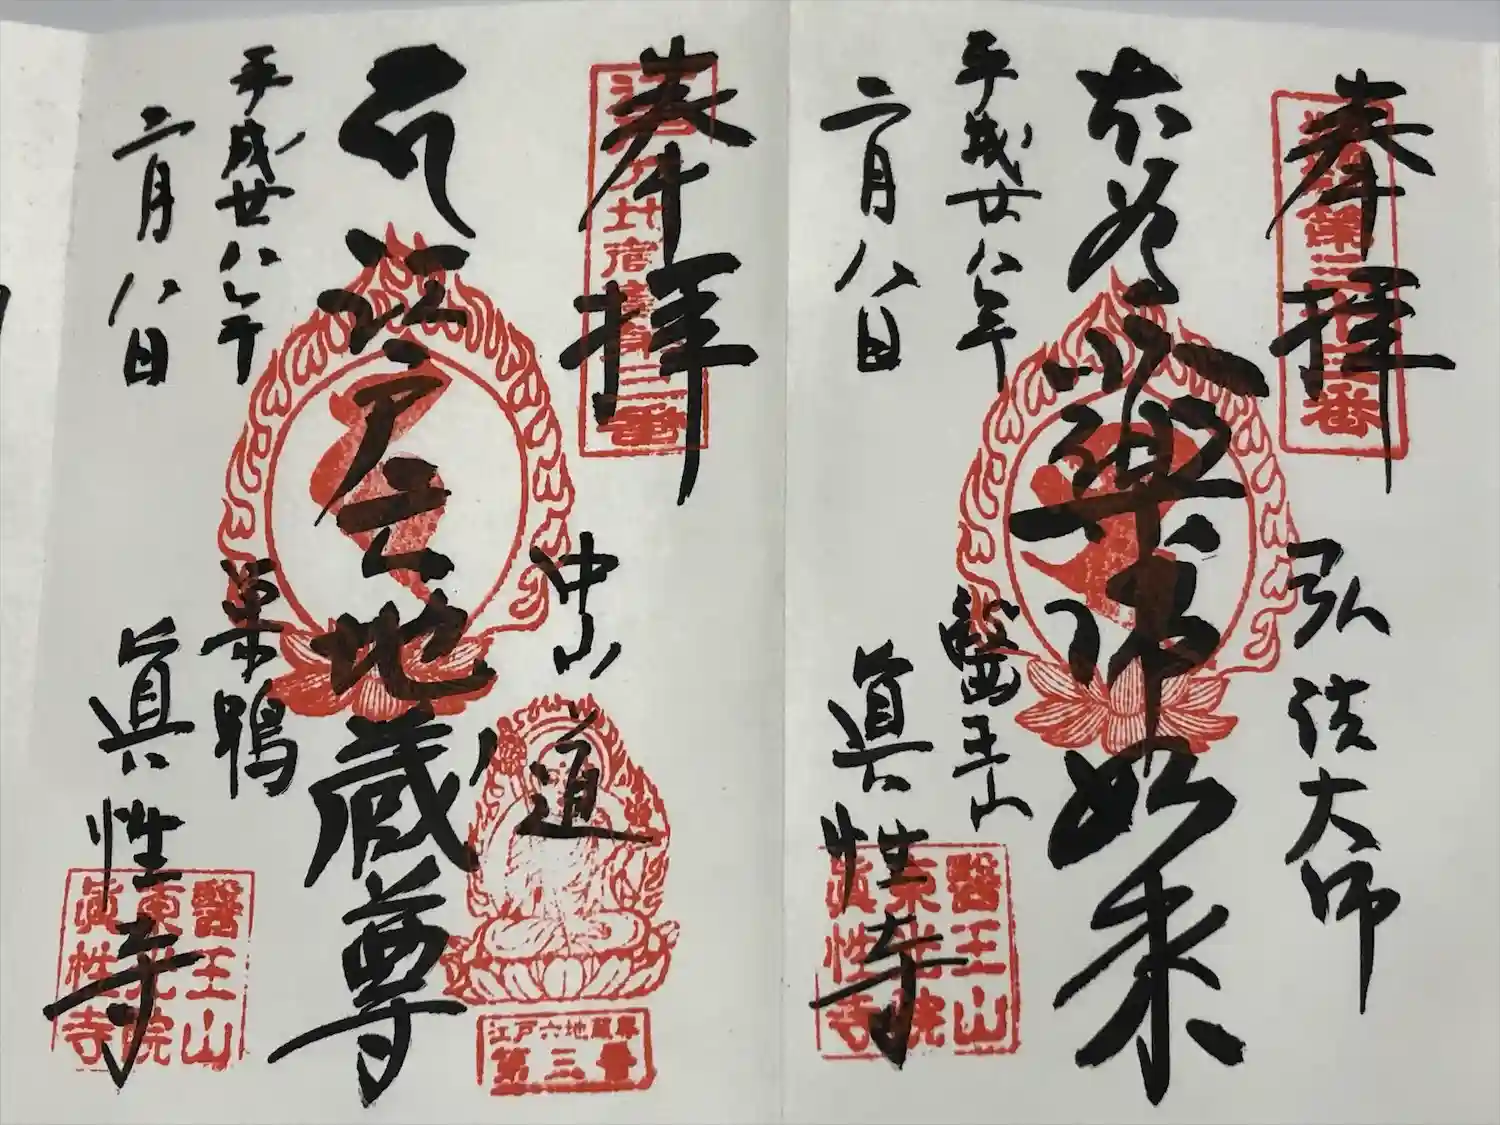 奉拝
弘法大師
本尊
薬師如来
平成廿八年
二月八日
醫王山
眞性寺
醫王山
東光院
眞性寺
奉拝
中山道
江戸六地蔵尊
平成廿八年
二月八日
巣鴨
眞性寺
江戸六地蔵尊
第三番
醫王山
東光院
眞性寺